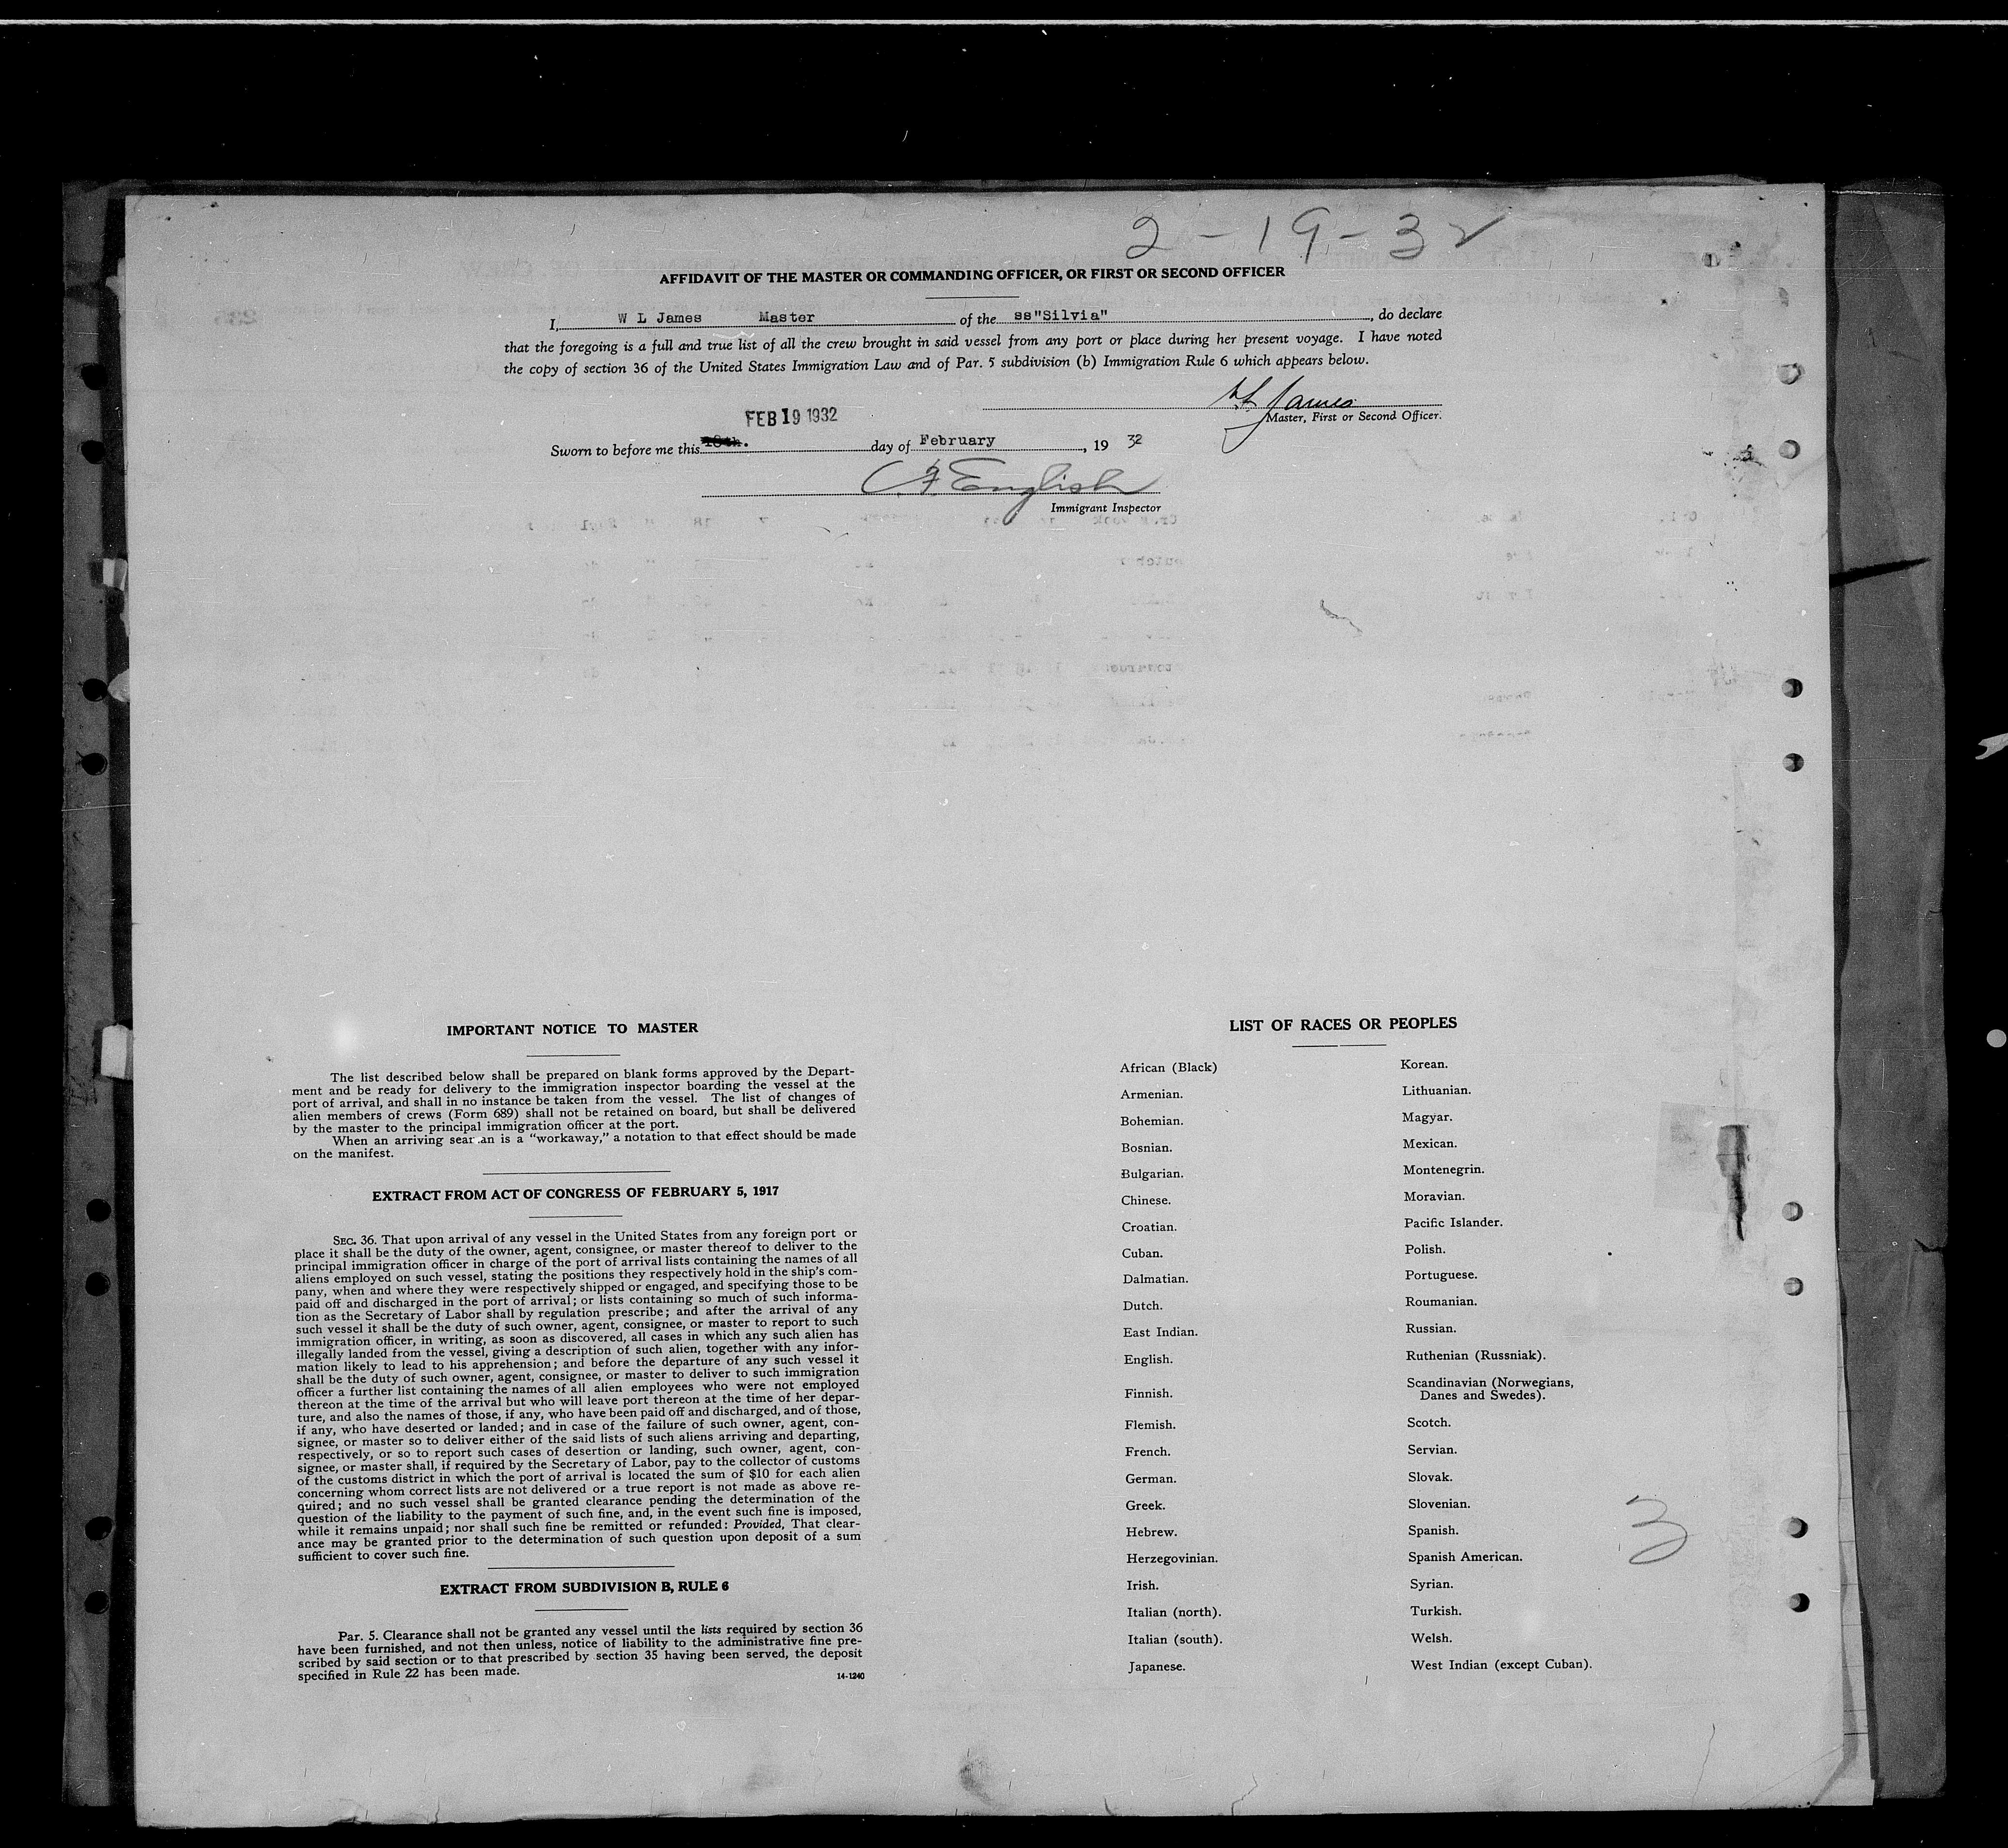 2-19-32
AFFIDAVIT OF THE MASTER OR COMMANDING OFFICER, OR FIRST OR SECOND OFFICER
I, W L James Master of the ss"Silvia", do declare
that the foregoing is a full and true list of all the crew brought in said vessel from any port or place during her present voyage. I have noted
the copy of section 36 of the United States Immigration Law and of Par. 5 subdivision (b) Immigration Rule 6 which appears below.
W L James
Master, First or Second Officer.
FEB 19 1932
Sworn to before me this 18th. day of February, 19 32
C. F. English
Immigrant Inspector
IMPORTANT NOTICE TO MASTER
The list described below shall be prepared on blank forms approved by the Depart-
ment and be ready for delivery to the immigration inspector boarding the vessel at the
port of arrival, and shall in no instance be taken from the vessel. The list of changes of
alien members of crews (Form 689) shall not be retained on board, but shall be delivered
by the master to the principal immigration officer at the port.
When an arriving seaman is a "workaway," a notation to that effect should be made
on the manifest.
EXTRACT FROM ACT OF CONGRESS OF FEBRUARY 5, 1917
SEC. 36. That upon arrival of any vessel in the United States from any foreign port or
place it shall be the duty of the owner, agent, consignee, or master thereof to deliver to the
principal immigration officer in charge of the port of arrival lists containing the names of all
aliens employed on such vessel, stating the positions they respectively hold in the ship's com-
pany, when and where they were respectively shipped or engaged, and specifying those to be
paid off and discharged in the port of arrival; or lists containing so much of such informa-
tion as the Secretary of Labor shall by regulation prescribe; and after the arrival of any
such vessel it shall be the duty of such owner, agent, consignee, or master to report to such
immigration officer, in writing, as soon as discovered, all cases in which any such alien has
illegally landed from the vessel, giving a description of such alien, together with any infor-
mation likely to lead to his apprehension; and before the departure of any such vessel it
shall be the duty of such owner, agent, consignee, or master to deliver to such immigration
officer a further list containing the names of all alien employees who were not employed
thereon at the time of the arrival but who will leave port thereon at the time of her depar-
ture, and also the names of those, if any, who have been paid off and discharged, and of those,
if any, who have deserted or landed; and in case of the failure of such owner, agent, con-
signee, or master so to deliver either of the said lists of such aliens arriving and departing,
respectively, or so to report such cases of desertion or landing, such owner, agent, con-
signee, or master shall, if required by the Secretary of Labor, pay to the collector of customs
of the customs district in which the port of arrival is located the sum of $10 for each alien
concerning whom correct lists are not delivered or a true report is not made as above re-
quired; and no such vessel shall be granted clearance pending the determination of the
question of the liability to the payment of such fine, and, in the event such fine is imposed,
while it remains unpaid; nor shall such fine be remitted or refunded: Provided, That clear-
ance may be granted prior to the determination of such question upon deposit of a sum
sufficient to cover such fine.
EXTRACT FROM SUBDIVISION B, RULE 6
Par. 5. Clearance shall not be granted any vessel until the lists required by section 36
have been furnished, and not then unless, notice of liability to the administrative fine pre-
scribed by said section or to that prescribed by section 35 having been served, the deposit
specified in Rule 22 has been made.
14-1240
LIST OF RACES OR PEOPLES
African (Black)
Armenian.
Bohemian.
Bosnian.
Bulgarian.
Chinese.
Croatian.
Cuban.
Dalmatian.
Dutch.
East Indian.
English.
Finnish.
Flemish.
French.
German.
Greek.
Hebrew.
Herzegovinian.
Irish.
Italian (north).
Italian (south).
Japanese.
Korean.
Lithuanian.
Magyar.
Mexican.
Montenegrin.
Moravian.
Pacific Islander.
Polish.
Portuguese.
Roumanian.
Russian.
Ruthenian (Russniak).
Scandinavian (Norwegians,
Danes and Swedes).
Scotch.
Servian.
Slovak.
Slovenian.
Spanish.
Spanish American.
Syrian.
Turkish.
Welsh.
West Indian (except Cuban).
3